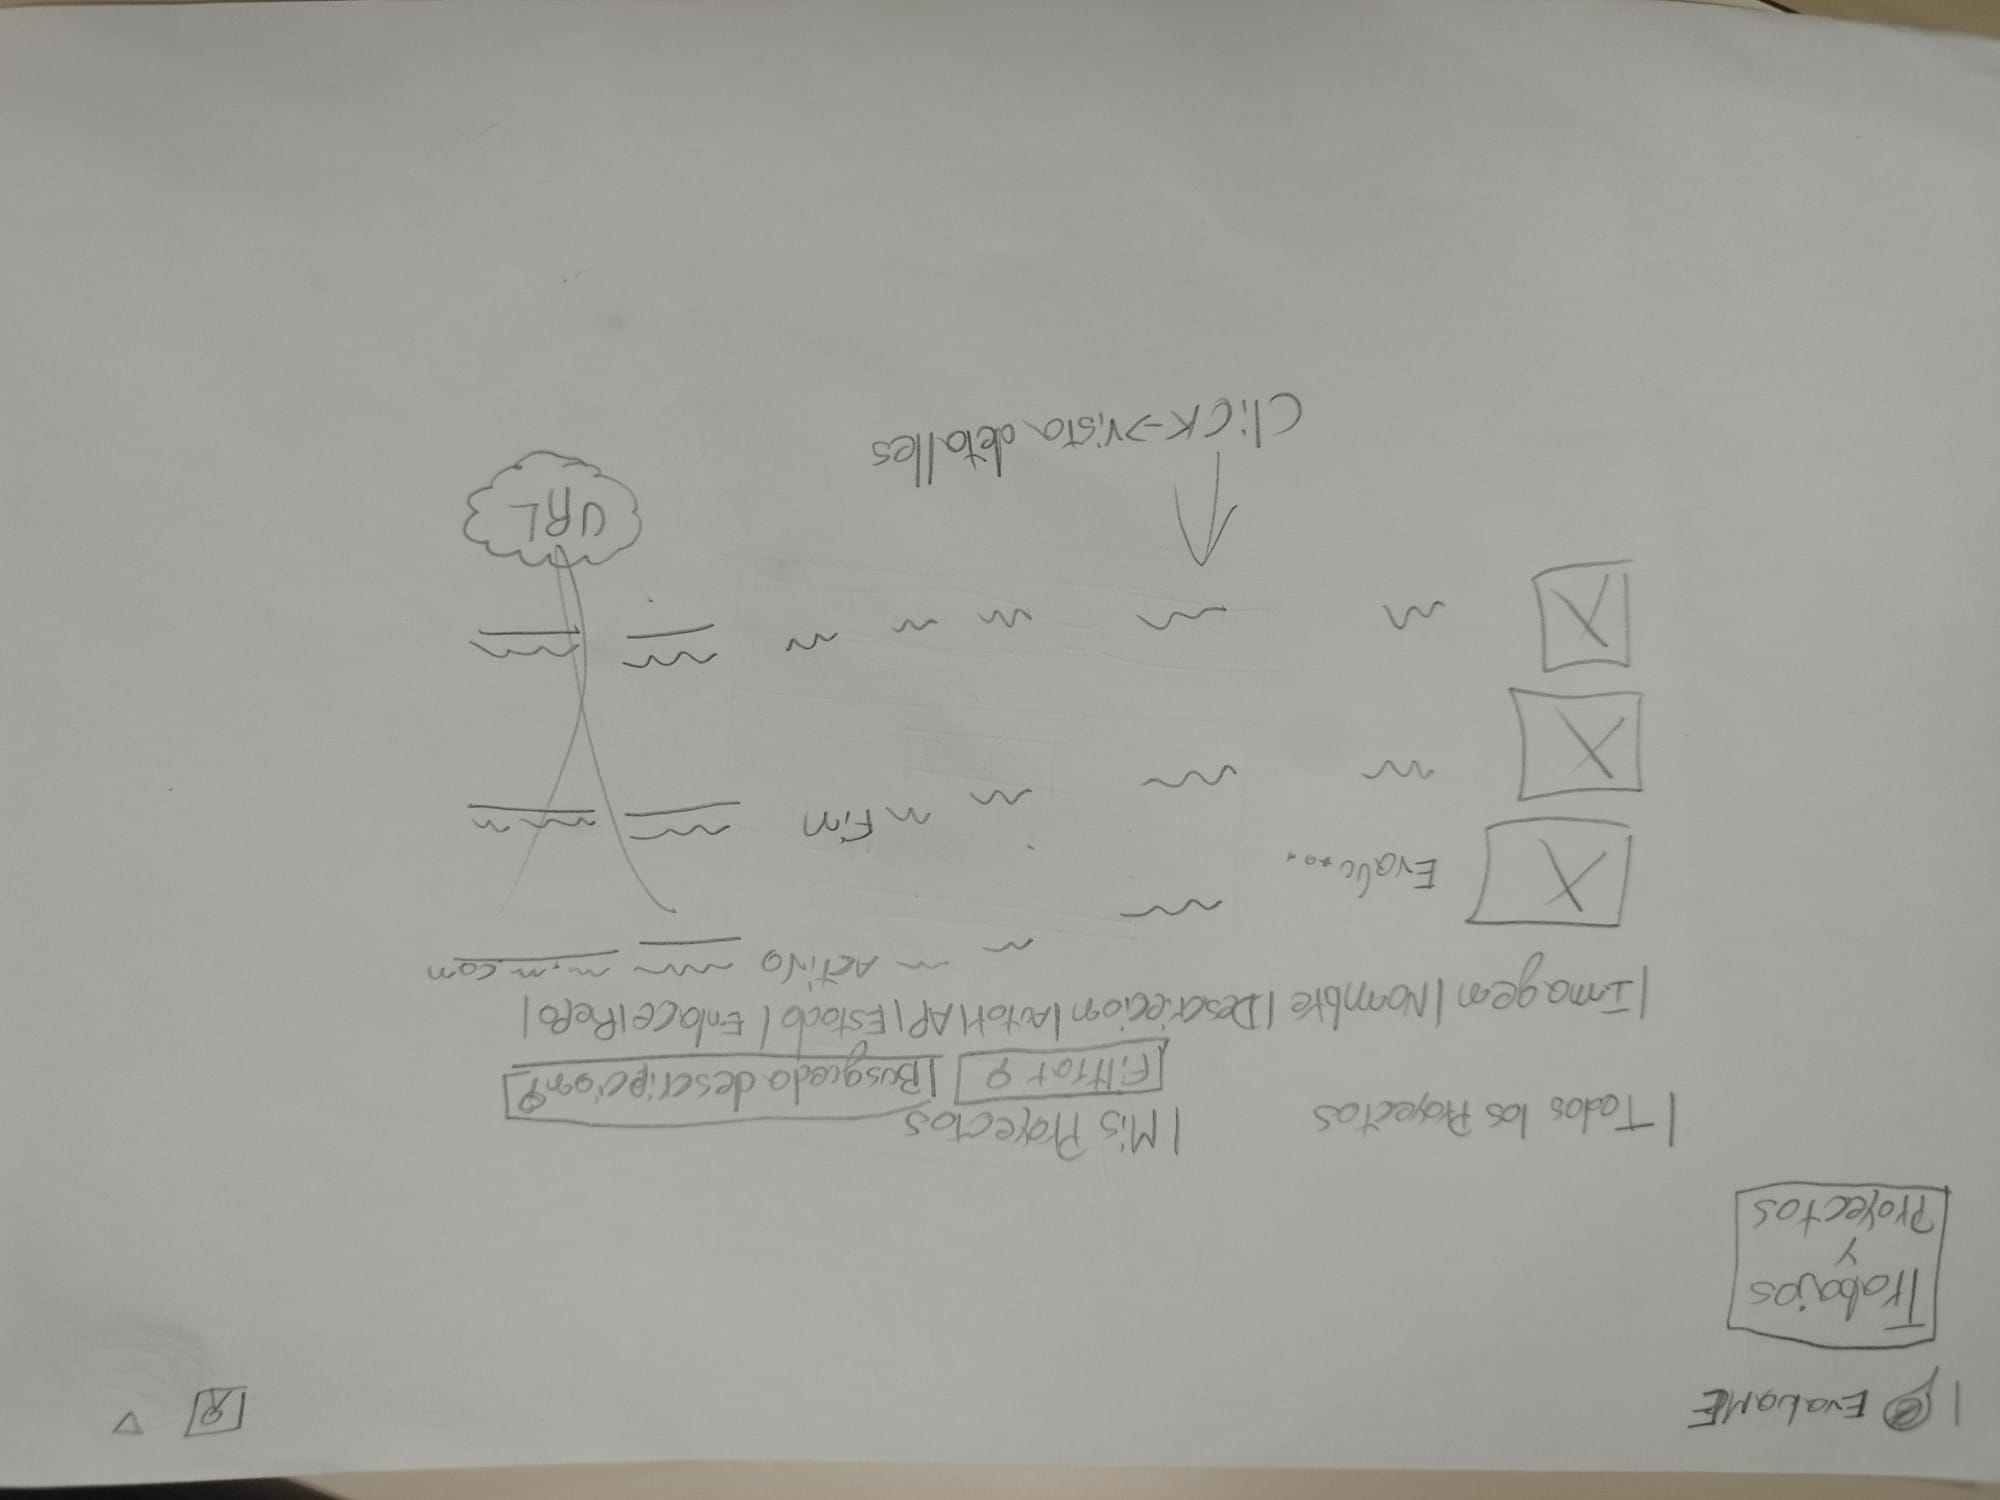 EvaluaME
Trabajos
y
Proyectos
| Todos los Proyectos | Mis Proyectos
Filtrar | Busqueda descripcion
| Imagen | Nombre | Descripcion | Autor | AP | Estado | Enlace | Repo |
Activo .com
Evalu....
Fin
URL
Click->vista detalles